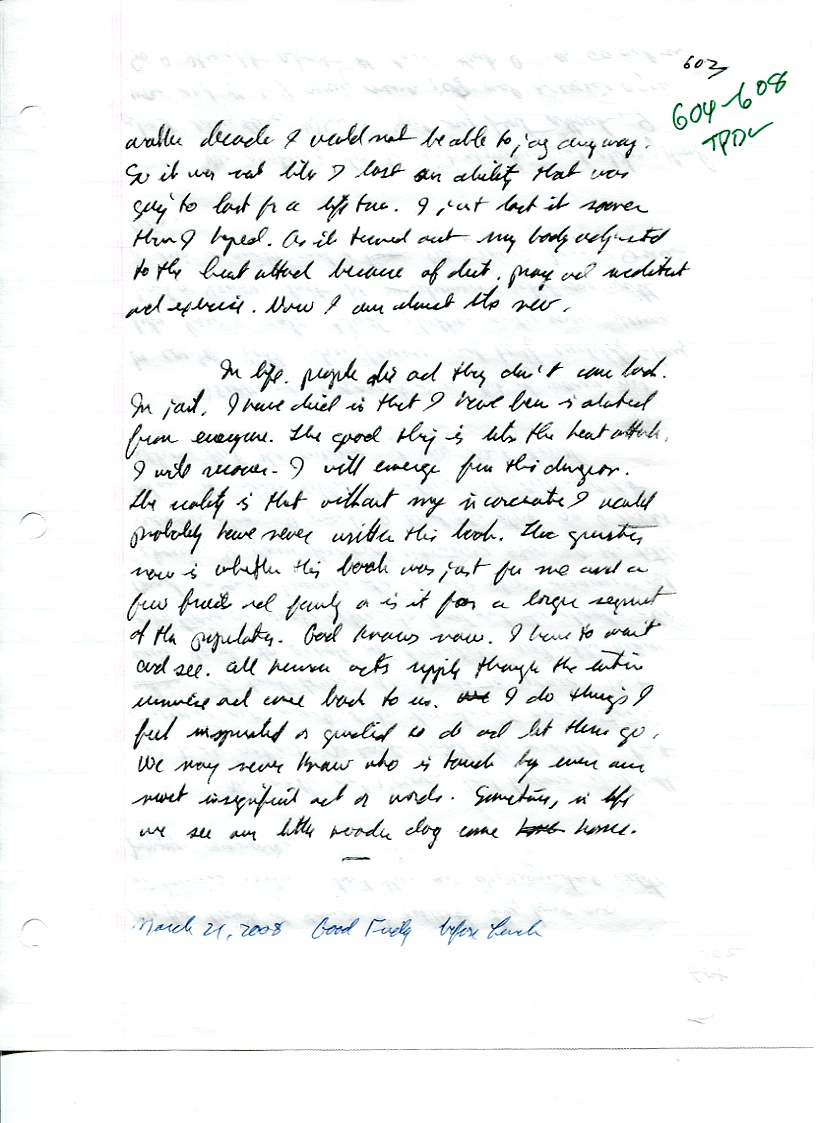 603
604-608
another decade I would not be able to jog anyway.
So it was not like I lost an ability that was
going to last for a life time. I just lost it sooner
than I hoped. As it turned out my body adjusted
to the heart attack because of diet, prayer and meditation
and exercise. Now I am almost like new.
In life, people die and they don't come back.
In jail, I have died in that I have been isolated
from everyone. The good thing is like the heart attack,
I will recover. I will emerge from this dungeon.
The reality is that without my incarceration I would
probably have never written this book. The question
now is whether this book was just for me and a
few friends and family or is it for a larger segment
of the population. God knows now. I have to wait
and see. All human acts ripple through the entire
universe and come back to us. I do things I
feel inspired or guided to do and let them go.
We may never know who is touch by even our
most insignificant act or words. Sometimes, in life
we see our little wooden dog come home.
March 21, 2008 Good Friday before lunch